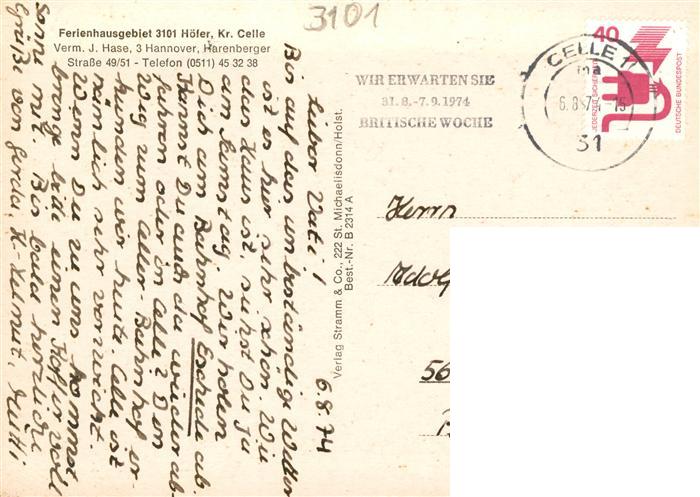 3101
Ferienhausgebiet 3101 Höfer, Kr. Celle
Verm. J. Hase, 3 Hannover, Harenberger
Straße 49/51 - Telefon (0511) 45 32 38
6.8.74
Lieber Vati!
Bis auf das unbeständige Wetter
ist es hier sehr schön. Wie
das Haus ist, siehst Du ja
am Samstag. Wir holen
Dich am Bahnhof Eschede ab.
Kannst Du auch da wieder ab-
fahren oder in Celle? Den
Weg zum Celler-Bahnhof er-
kunden wir heute. Celle ist
nämlich sehr verzwickt.
Wenn Du zu uns kommst
bringe bitte einen Koffer voll
Sonne mit. Bis bald herzliche
Grüße von Gerda, K-Helmut, Mutti
Verlag Stramm & Co., 222 St. Michaelisdonn/Holst.
Best.-Nr. B 2314 A
WIR ERWARTEN SIE
31.8.-7.9.1974
BRITISCHE WOCHE
CELLE 1
ma
6.8.74-15
31
40
JEDERZEIT SICHERHEIT
DEUTSCHE BUNDESPOST
Herrn
Adolf
56